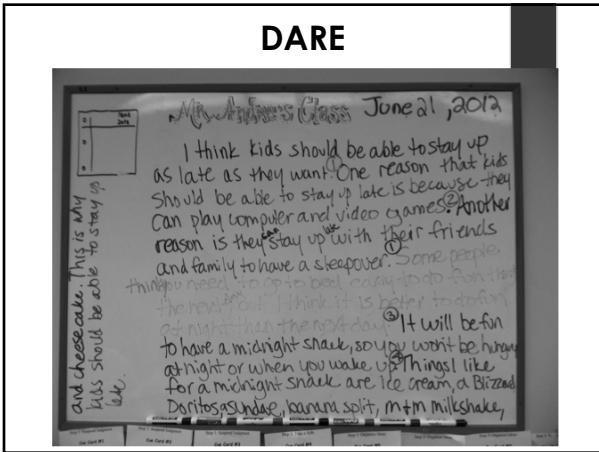 DARE
Mr. Andre's Class June 21, 2012
I think kids should be able to stay up
as late as they want. ① One reason that kids
should be able to stay up late is because they
can play computer and video games. ② Another
reason is they can stay up late with their friends
and family to have a sleepover. ① Some people
think you need to go to bed to do fun
the next I think it is better to do fun
at night than the next day. ③ It will be fun
to have a midnight snack, so you won't be hungry
at night or when you wake up. ④ Things I like
for a midnight snack are Ice cream, a Blizzard
Doritos, a sundae, banana split, m+m milkshake,
and cheesecake. This is why
kids should be able to stay up
late.
Cue Card #1
Cue Card #2